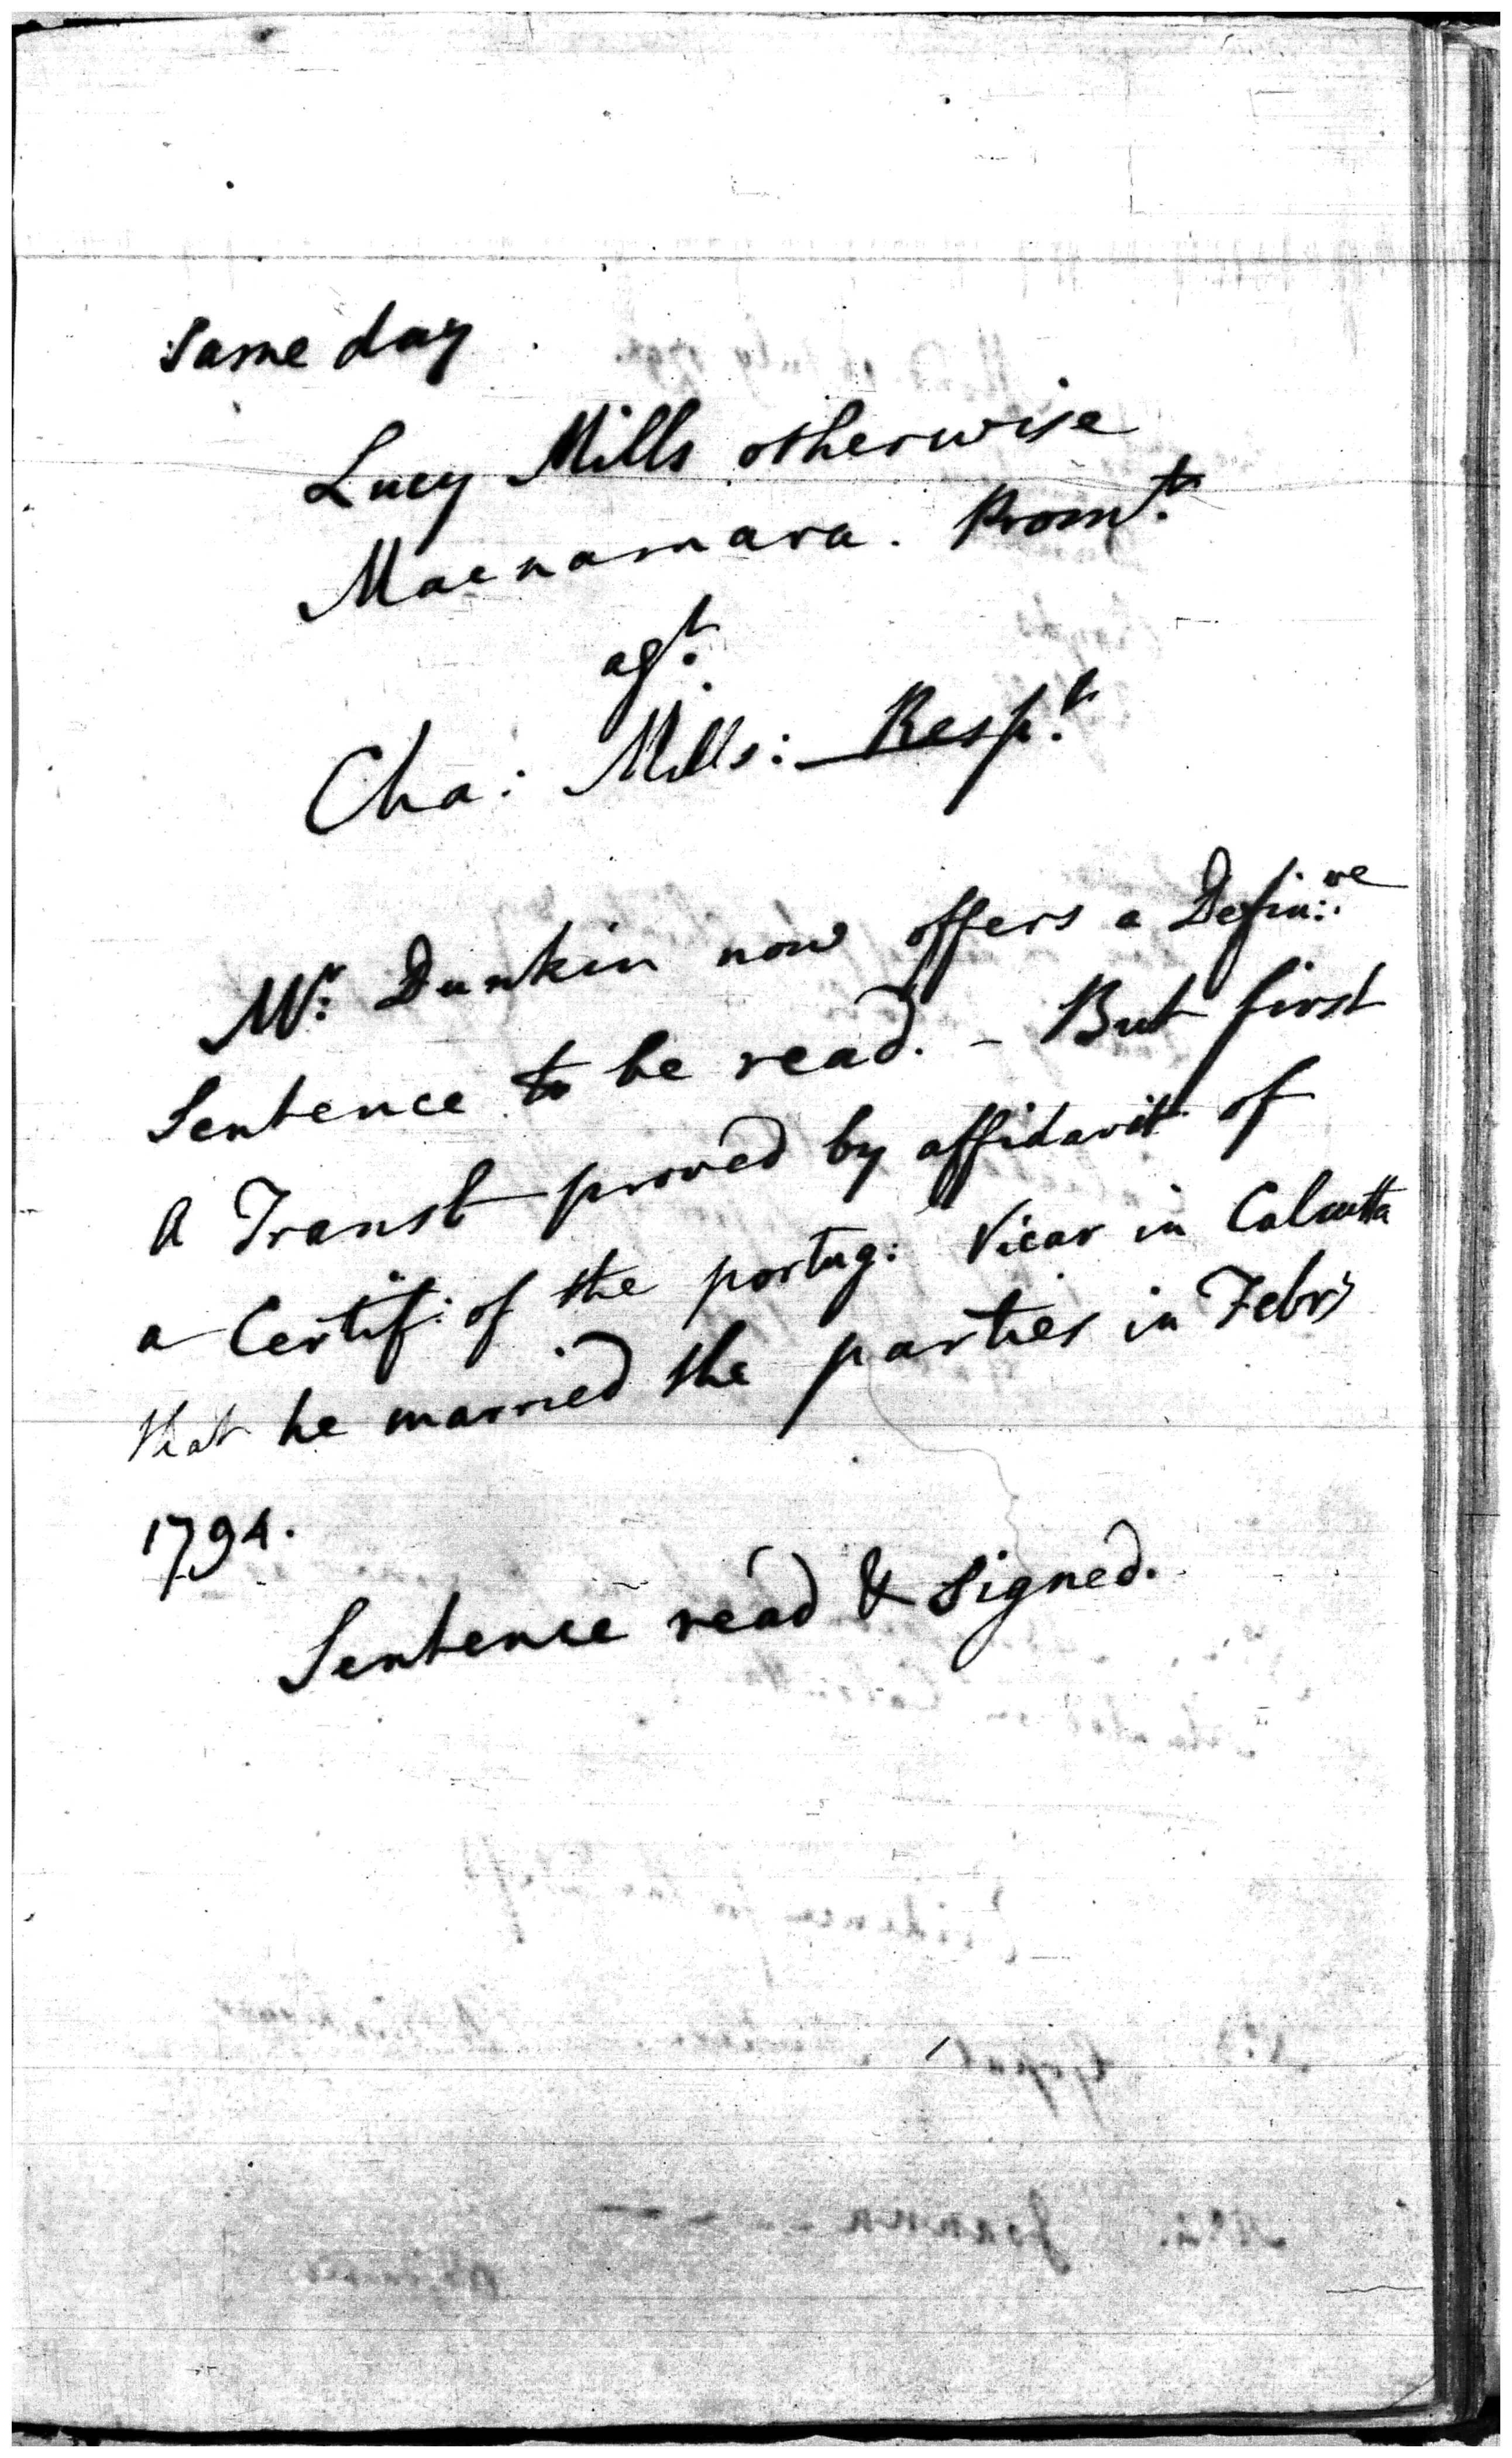 Same day
Lucy Mills otherwise
Macnamara. Promt.
agt.
Cha: Mills: — Respt.
Mr: Dunkin now offers a Defin:ve
Sentence to be read. - But first
A Transt proved by affidavit of
a Certif: of the portug: Vicar in Calcutta
that he married the parties in Febry
1794.
Sentence read & signed.